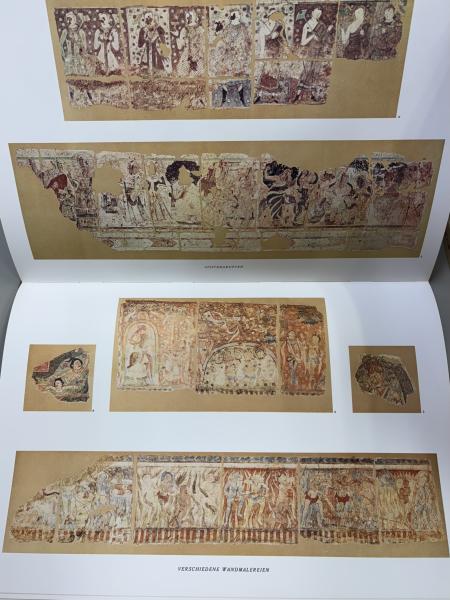 STIFTERGRUPPEN
VERSCHIEDENE WANDMALEREIEN